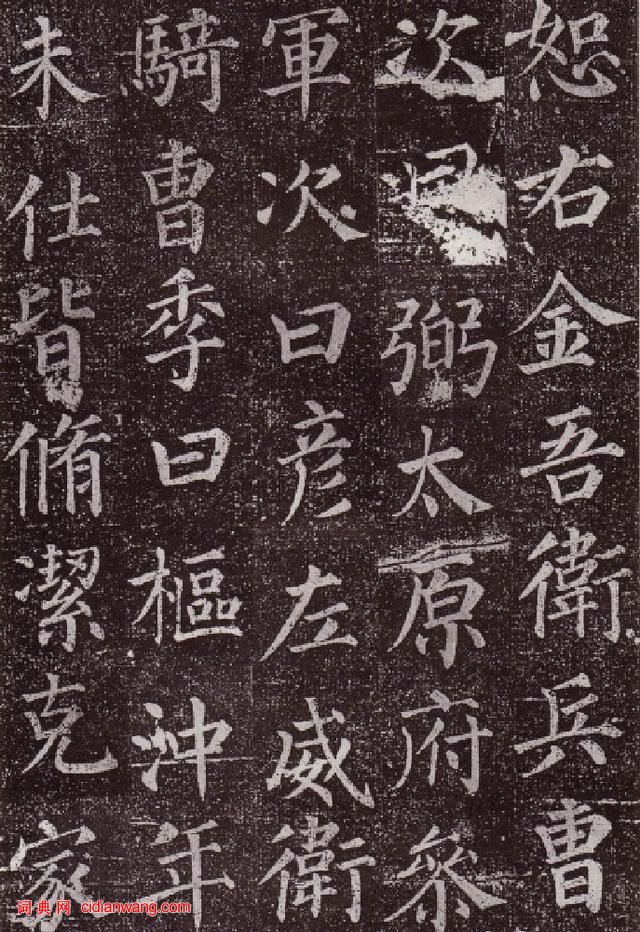 恕右金吾衛兵曹
次曰弼太原府叅
軍次曰彦左威衛
騎曹季曰樞沖年
未仕皆脩潔克家
词典网 cidianwang.com